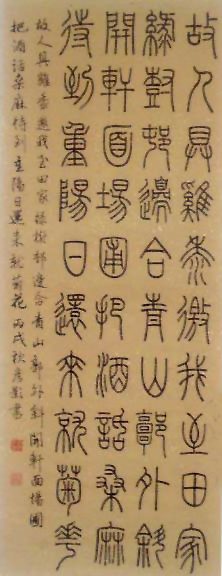 故人具雞黍邀我至田家
綠樹邨邊合青山郭外斜
開軒面場圃把酒話桑麻
待到重陽日還來就菊花
故人具雞黍邀我至田家綠樹邨邊合青山郭外斜開軒面場圃
把酒話桑麻待到重陽日還來就菊花丙戌秋書